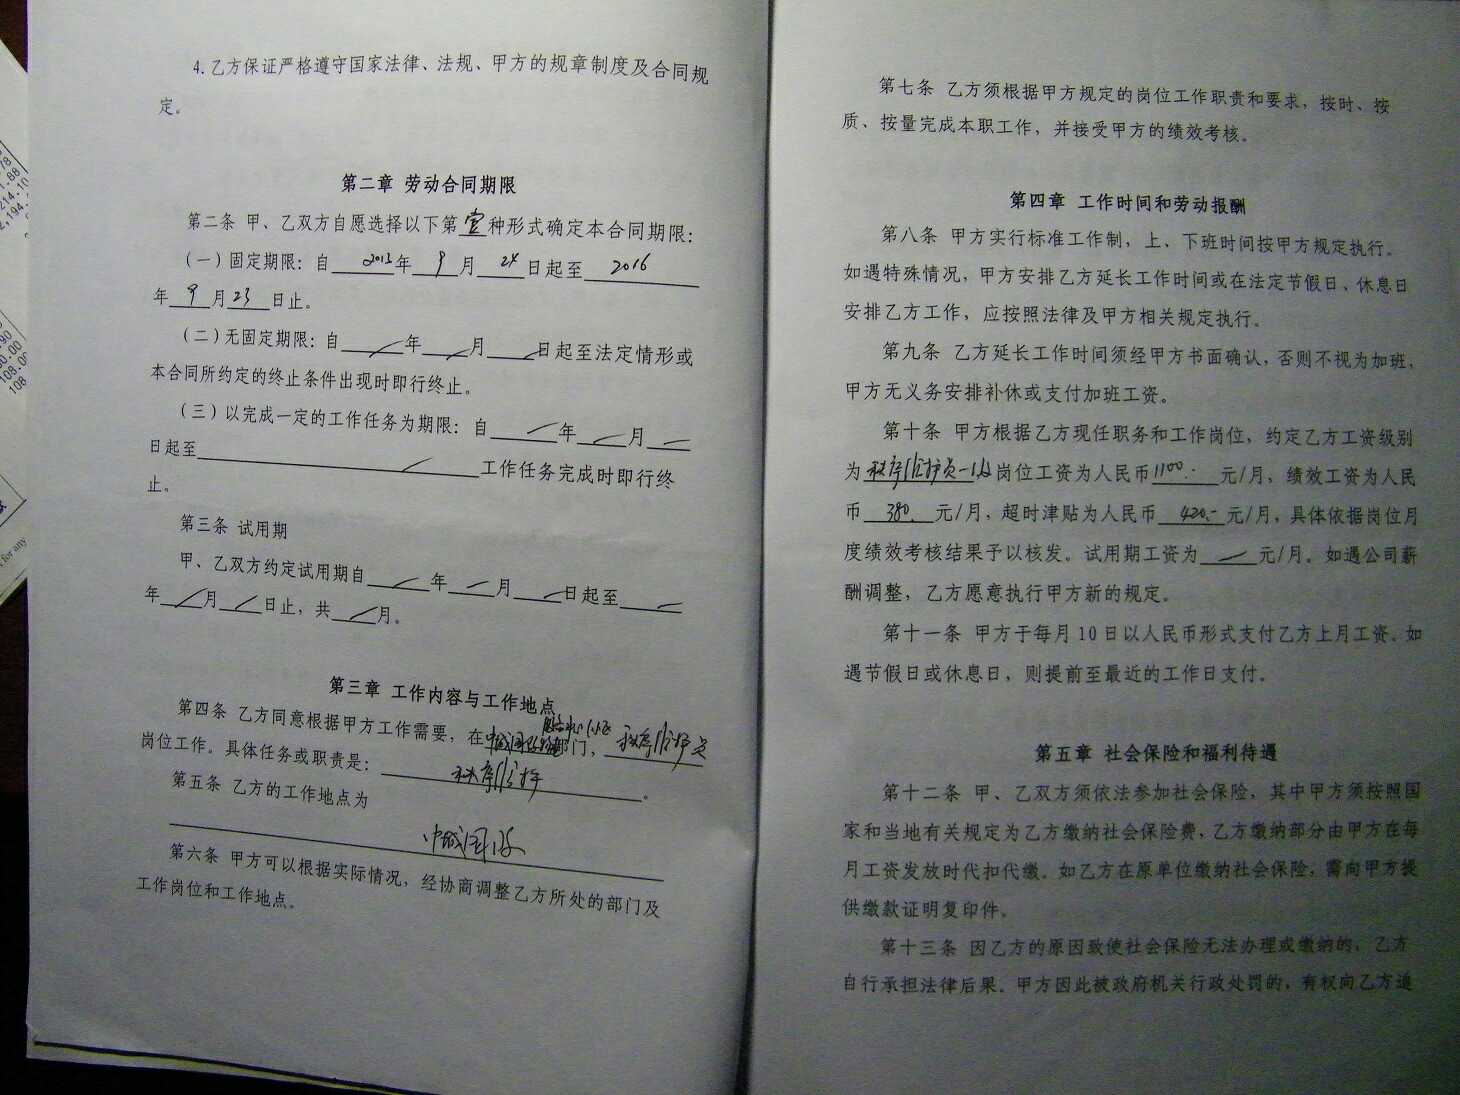 4.乙方保证严格遵守国家法律、法规、甲方的规章制度及合同规
定。
第二章 劳动合同期限
第二条 甲、乙双方自愿选择以下第壹种形式确定本合同期限:
(一)固定期限:自2013年9月24日起至2016
年9月23日止。
(二)无固定期限:自 年 月 日起至法定情形或
本合同所约定的终止条件出现时即行终止。
(三)以完成一定的工作任务为期限:自 年 月
日起至 工作任务完成时即行终
止。
第三条 试用期
甲、乙双方约定试用期自 年 月 日起至
年 月 日止,共 月。
第三章 工作内容与工作地点
第四条 乙方同意根据甲方工作需要,在 部门,秩序维护员
岗位工作。具体任务或职责是:秩序维护。
第五条 乙方的工作地点为
中城国际
第六条 甲方可以根据实际情况,经协商调整乙方所处的部门及
工作岗位和工作地点。
第七条 乙方须根据甲方规定的岗位工作职责和要求,按时、按
质、按量完成本职工作,并接受甲方的绩效考核。
第四章 工作时间和劳动报酬
第八条 甲方实行标准工作制,上、下班时间按甲方规定执行。
如遇特殊情况,甲方安排乙方延长工作时间或在法定节假日、休息日
安排乙方工作,应按照法律及甲方相关规定执行。
第九条 乙方延长工作时间须经甲方书面确认,否则不视为加班,
甲方无义务安排补休或支付加班工资。
第十条 甲方根据乙方现任职务和工作岗位,约定乙方工资级别
为秩序维护员一级岗位工资为人民币1100.-元/月,绩效工资为人民
币380.元/月,超时津贴为人民币420.-元/月,具体依据岗位月
度绩效考核结果予以核发。试用期工资为 元/月。如遇公司薪
酬调整,乙方愿意执行甲方新的规定。
第十一条 甲方于每月10日以人民币形式支付乙方上月工资。如
遇节假日或休息日,则提前至最近的工作日支付。
第五章 社会保险和福利待遇
第十二条 甲、乙双方须依法参加社会保险,其中甲方须按照国
家和当地有关规定为乙方缴纳社会保险费,乙方缴纳部分由甲方在每
月工资发放时代扣代缴。如乙方在原单位缴纳社会保险,需向甲方提
供缴款证明复印件。
第十三条 因乙方的原因致使社会保险无法办理或缴纳的,乙方
自行承担法律后果。甲方因此被政府机关行政处罚的,有权向乙方追